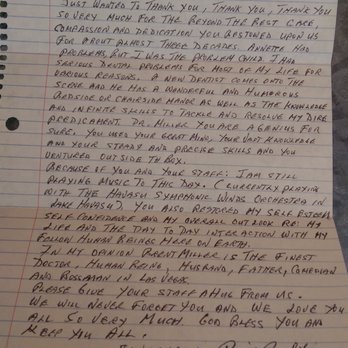 JUST WANTED TO THANK YOU, THANK YOU, THANK YOU
SO VERY MUCH FOR THE BEYOND THE BEST CARE,
COMPASSION AND DEDICATION YOU BESTOWED UPON US
FOR ABOUT ALMOST THREE DECADES. ANNETTE HAD
PROBLEMS, BUT I WAS THE PROBLEM CHILD. I HAD
SERIOUS DENTAL PROBLEMS FOR MOST OF MY LIFE FOR
VARIOUS REASONS. A NEW DENTIST COMES ONTO THE
SCENE AND HE HAS A WONDERFUL AND HUMOROUS
BEDSIDE OR CHAIRSIDE MANOR AS WELL AS THE KNOWLEDGE
AND INFINITE SKILLS TO TACKLE AND RESOLVE MY DIRE
PREDICAMENT. DR. MILLER YOU ARE A GENIUS FOR
SURE. YOU USED YOUR GREAT MIND, YOUR VAST KNOWLEDGE
AND YOUR STEADY AND PRECISE SKILLS AND YOU
VENTURED OUTSIDE TH BOX.
BECAUSE OF YOU AND YOUR STAFF: I AM STILL
PLAYING MUSIC TO THIS DAY. (CURRENTLY PLAYING
WITH THE HAVASU SYMPHONIC WINDS ORCHESTRA IN
LAKE HAVASU) YOU ALSO RESTORED MY SELF ESTEEM
SELF CONFIDENCE AND MY OVERALL OUT LOOK RE: MY
LIFE AND THE DAY TO DAY INTERACTION WITH MY
FELLOW HUMAN BEINGS HERE ON EARTH.
IN MY OPINION BRENT MILLER IS THE FINEST
DOCTOR, HUMAN BEING, HUSBAND, FATHER, COMEDIAN
AND BOSSMAN IN LAS VEGAS.
PLEASE GIVE YOUR STAFF A HUG FROM US.
WE WILL NEVER FORGET YOU AND WE LOVE YOU
ALL SO VERY MUCH. GOD BLESS YOU AND
KEEP YOU ALL.